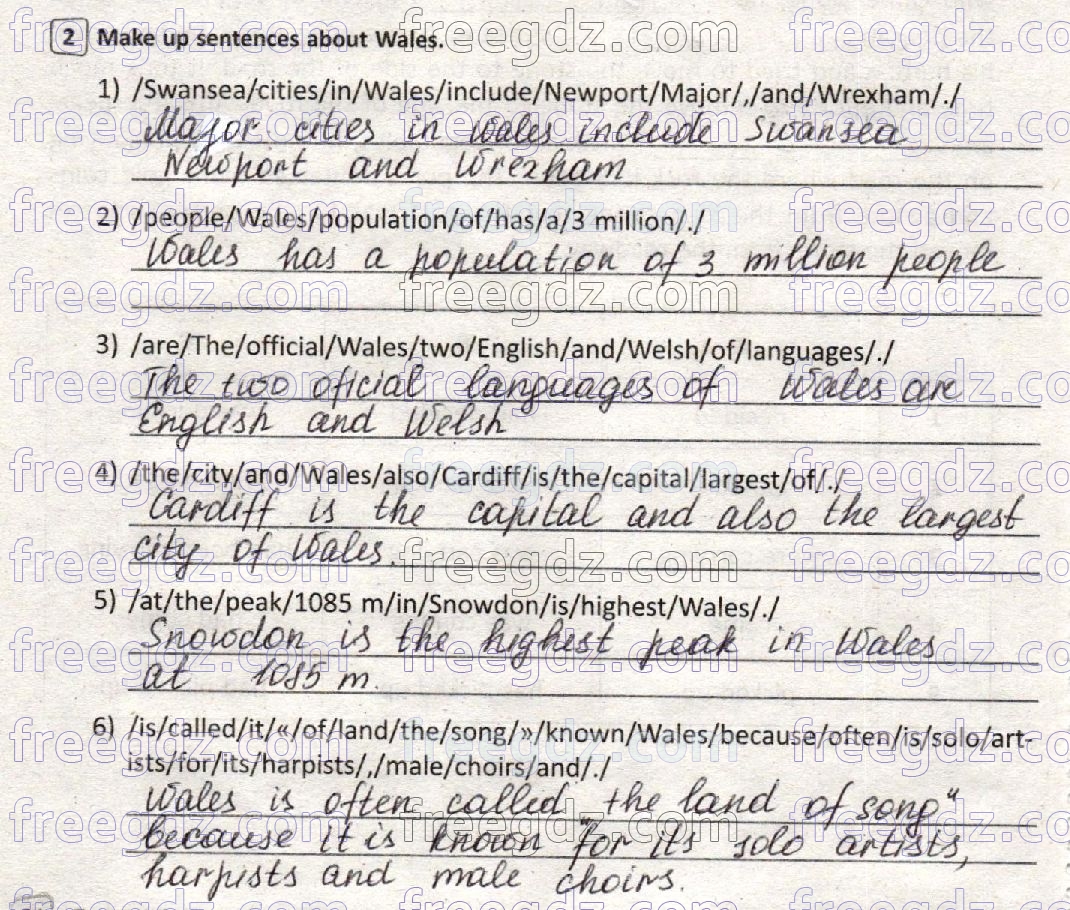 2 Make up sentences about Wales.
1) /Swansea/cities/in/Wales/include/Newport/Major/,/and/Wrexham/./
Major cities in Wales include Swansea
Newport and Wrexham
2) /people/Wales/population/of/has/a/3 million/./
Wales has a population of 3 million people
3) /are/The/official/Wales/two/English/and/Welsh/of/languages/./
The two oficial languages of Wales are
English and Welsh
4) /the/city/and/Wales/also/Cardiff/is/the/capital/largest/of/./
Cardiff is the capital and also the largest
city of Wales.
5) /at/the/peak/1085 m/in/Snowdon/is/highest/Wales/./
Snowdon is the highest peak in Wales
at 1085 m.
6) /is/called/it/«/of/land/the/song/»/known/Wales/because/often/is/solo/art-
ists/for/its/harpists/,/male/choirs/and/./
Wales is often called „the land of song"
because it is known for its solo artists,
harpists and male choirs.
freegdz.com